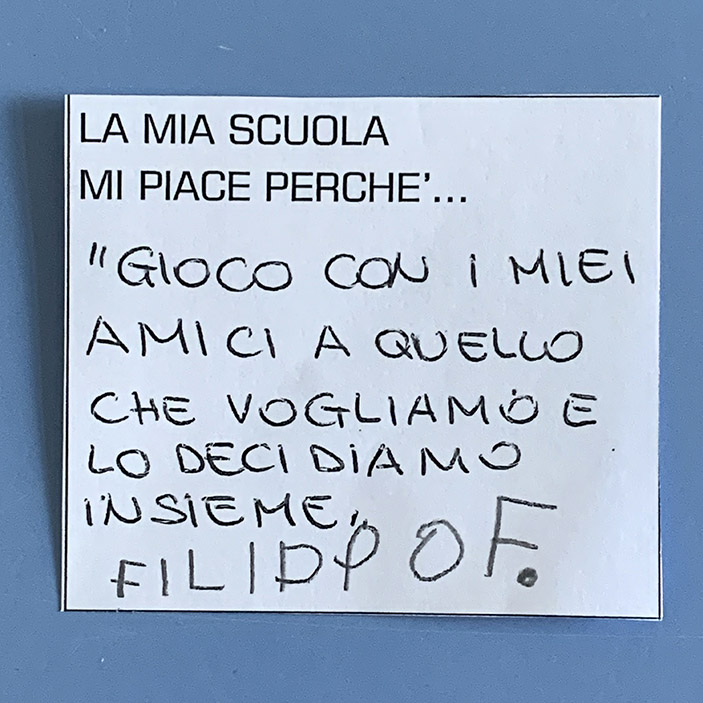 LA MIA SCUOLA
MI PIACE PERCHE'...
"GIOCO CON I MIEI
AMICI A QUELLO
CHE VOGLIAMO E
LO DECIDIAMO
INSIEME,
FILIPPO F.